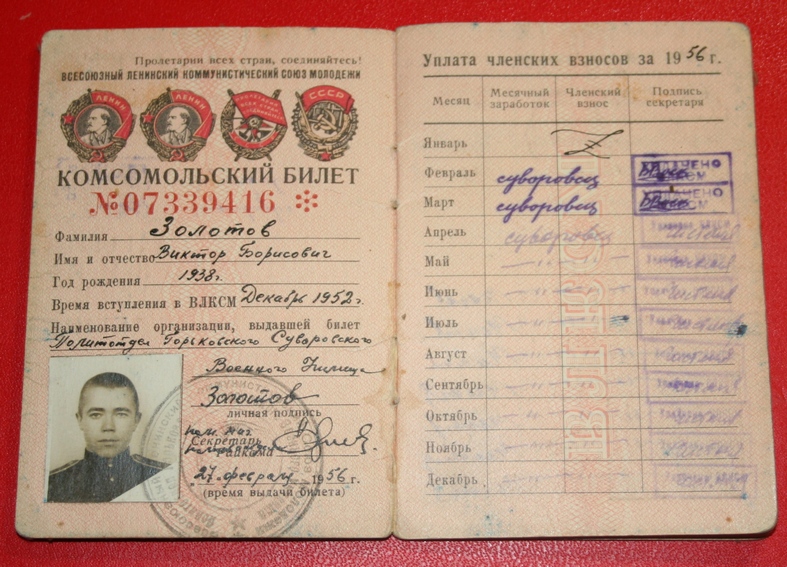 Пролетарии всех стран, соединяйтесь!
ВСЕСОЮЗНЫЙ ЛЕНИНСКИЙ КОММУНИСТИЧЕСКИЙ СОЮЗ МОЛОДЕЖИ
ЛЕНИН ЛЕНИН СССР
КОМСОМОЛЬСКИЙ БИЛЕТ
№07339416
Фамилия Золотов
Имя и отчество Виктор Борисович
Год рождения 1938г.
Время вступления в ВЛКСМ Декабрь 1952г.
Наименование организации, выдавшей билет
Политотдел Горьковского Суворовского
Военного Училища
Золотов
личная подпись
Секретарь
27 февраля 1956 г.
(время выдачи билета)
Уплата членских взносов за 1956 г.
Месяц Месячный заработок Членский взнос Подпись секретаря
Январь Z
Февраль суворовец УПЛАЧЕНО ВЛКСМ
Март суворовец УПЛАЧЕНО ВЛКСМ
Апрель суворовец
Май -"-
Июнь -"-
Июль -"-
Август -"-
Сентябрь -"-
Октябрь -"-
Ноябрь -"-
Декабрь -"-